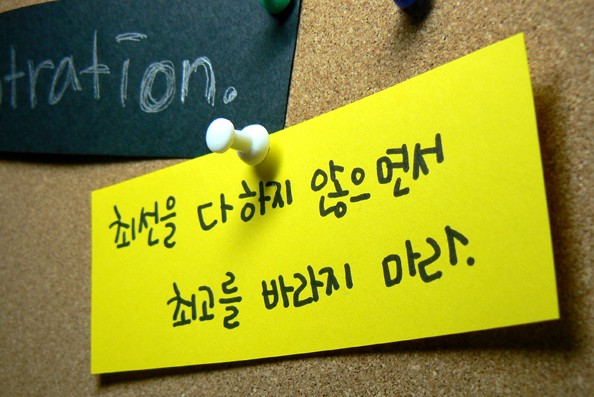 tration.
최선을 다하지 않으면서
최고를 바라지 마라.